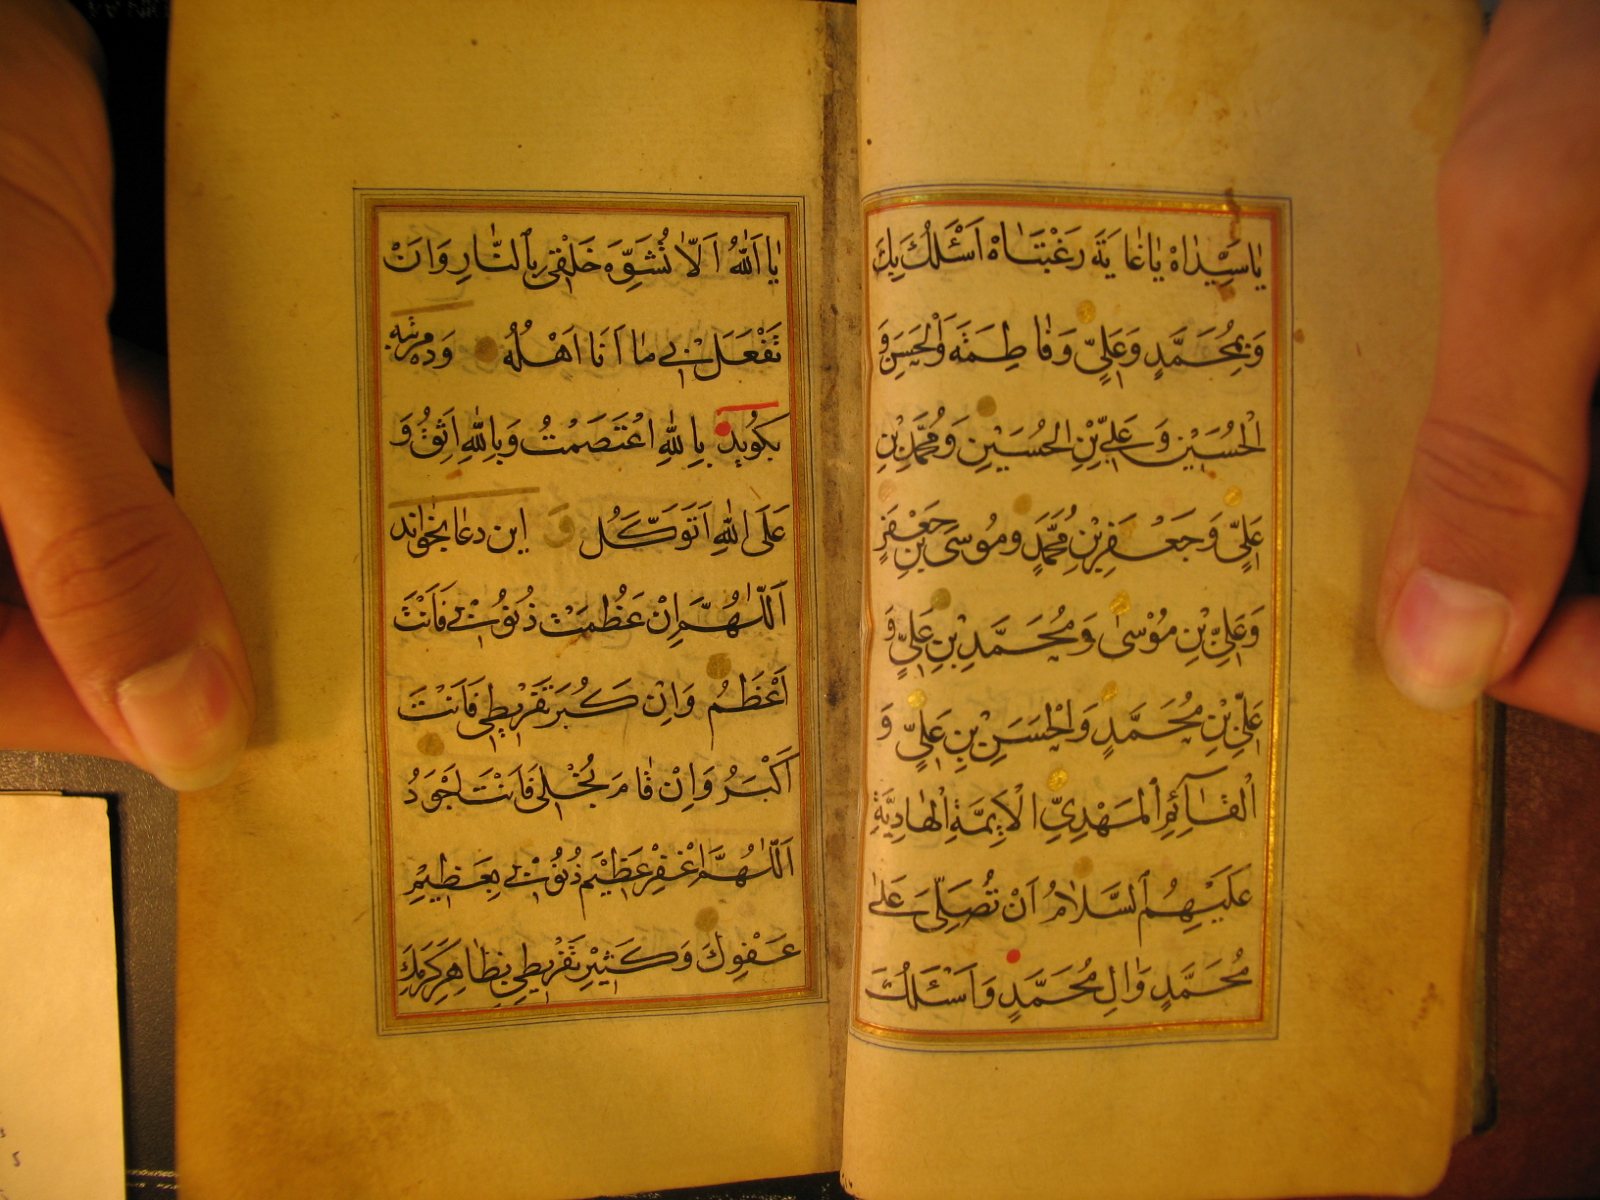 يٰا سَيِّدٰاهُ يٰا غٰايَةَ رَغْبَتٰاهُ اَسْئَلُكَ بِكَ
وَ بِمُحَمَّدٍ وَ عَلِيٍّ وَ فٰاطِمَةَ وَ الْحَسَنِ وَ
الْحُسَيْنِ وَ عَلِيِّ بْنِ الْحُسَيْنِ وَ مُحَمَّدِ بْنِ
عَلِيٍّ وَ جَعْفَرِ بْنِ مُحَمَّدٍ وَ مُوسَى بْنِ جَعْفَرٍ
وَ عَلِيِّ بْنِ مُوْسىٰ وَ مُحَمَّدِ بْنِ عَلِيٍّ وَ
عَلِيِّ بْنِ مُحَمَّدٍ وَ الْحَسَنِ بْنِ عَلِيٍّ وَ
الْقٰائِمِ الْمَهْدِيِّ الْاَئِمَّةِ الْهٰادِيَّةِ
عَلَيْهِمُ السَّلٰامُ اَنْ تُصَلِّيَ عَلىٰ
مُحَمَّدٍ وَ اٰلِ مُحَمَّدٍ وَ اَسْئَلُكَ
يٰا اَللّٰهُ اَلّٰا تُشَوِّهَ خَلْقِي بِالنّٰارِ وَ اَنْ
تَفْعَلَ بِي مٰا اَنَا اَهْلُهُ
بكويد بِاللّٰهِ اعْتَصَمْتُ وَ بِاللّٰهِ اَثِقُ وَ
عَلَى اللّٰهِ اَتَوَكَّلُ و اين دعا بخواند
اَللّٰهُمَّ اِنْ عَظُمَتْ ذُنُوْبِي فَاَنْتَ
اَعْظَمُ وَ اِنْ كَبُرَ تَفْرِيطِي فَاَنْتَ
اَكْبَرُ وَ اِنْ دٰامَ بُخْلِي فَاَنْتَ اَجْوَدُ
اَللّٰهُمَّ اغْفِرْ عَظِيْمَ ذُنُوْبِي بِعَظِيْمِ
عَفْوِكَ وَ كَثِيْرَ تَفْرِيطِي بِظٰاهِرِ كَرَمِكَ